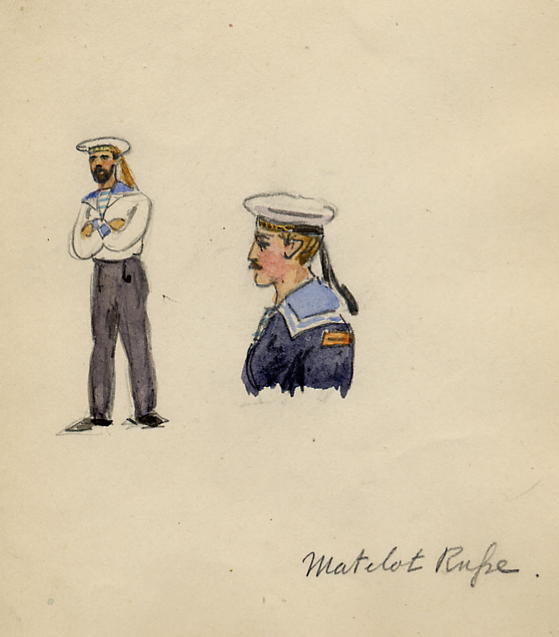 Matelot Ruſse.